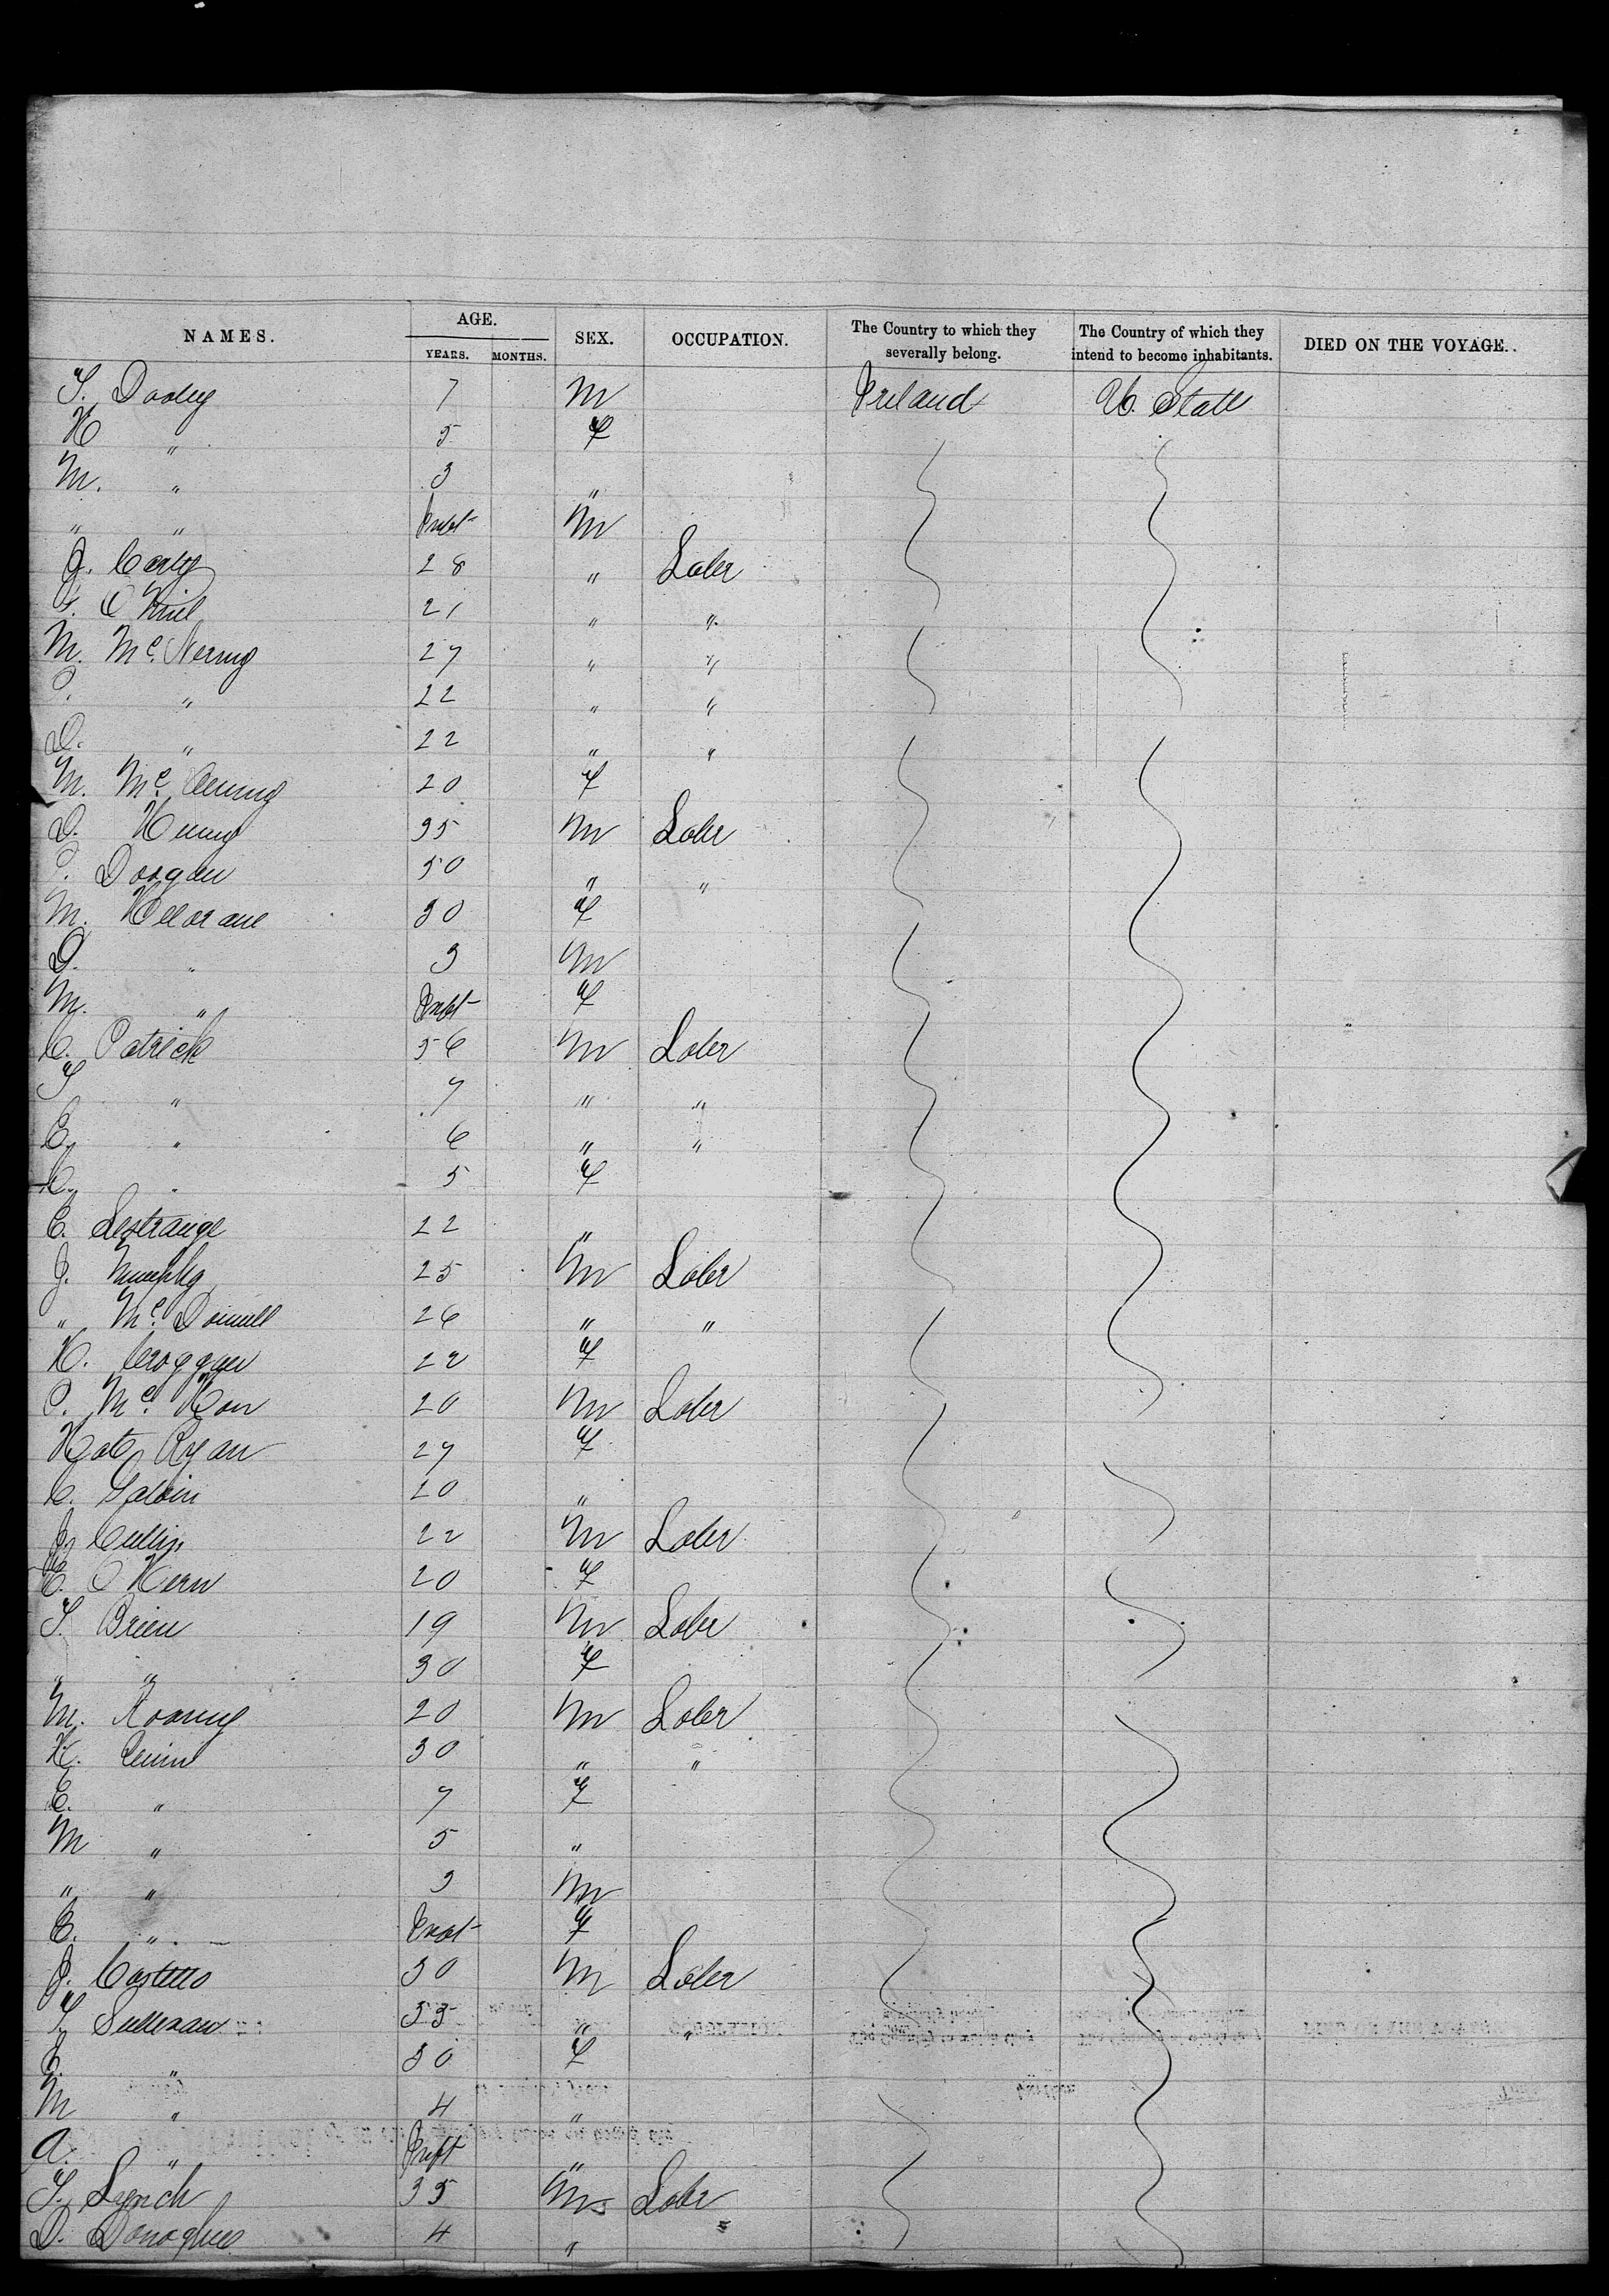 NAMES. AGE. YEARS. MONTHS. SEX. OCCUPATION. The Country to which they severally belong. The Country of which they intend to become inhabitants. DIED ON THE VOYAGE.
T. Dooley 7 M Ireland U. State
K " 5 F
M. " 3 "
" " Infst M
J. Carty 28 " Laber
T. O'Niel 21 " "
M. Mc. Nerny 27 " "
P. " 22 " "
D. " 22 " "
M. Mc. 20 F
D. Kenny 35 M Laber
P. Doogan 50 " "
M. Kellorane 30 F
D. " 3 M
M. " Infst F
C. Patrick 56 M Laber
T " 7 " "
E. " 6 " "
C. " 5 F
E. Lestrange 22 "
J. Murphy 25 M Laber
" Mc. Donnell 26 " "
K. Croggen 22 F
P. Mc. Keon 20 M Laber
Kate Ryan 27 F
C. Galvin 20 "
J. Cullin 22 M Laber
E. O Kern 20 F
T. Brien 19 M Laber
" " 30 F
M. Rooney 20 M Laber
K. Quinn 30 " "
E. " 7 F
M " 5 "
" " 3 M
E. " Infst F
J. Costello 30 M Laber
T. Sullevan 33 " "
" 30 F
M " 4 "
A. " Infst "
T. Lynch 35 M Laber
D. Donoghue 4 " "